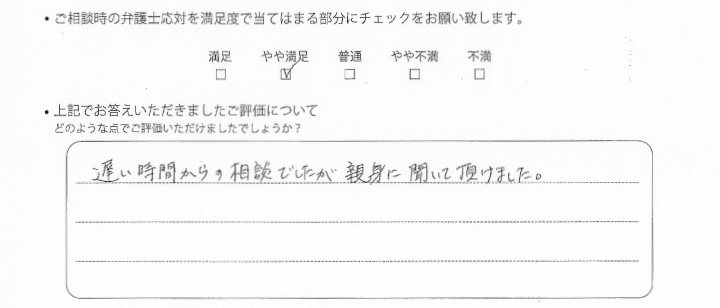 • ご相談時の弁護士応対を満足度で当てはまる部分にチェックをお願い致します。
満足 やや満足 普通 やや不満 不満
□ ☑ □ □ □
• 上記でお答えいただきましたご評価について
どのような点でご評価いただけましたでしょうか?
遅い時間からの相談でしたが親身に聞いて頂けました。